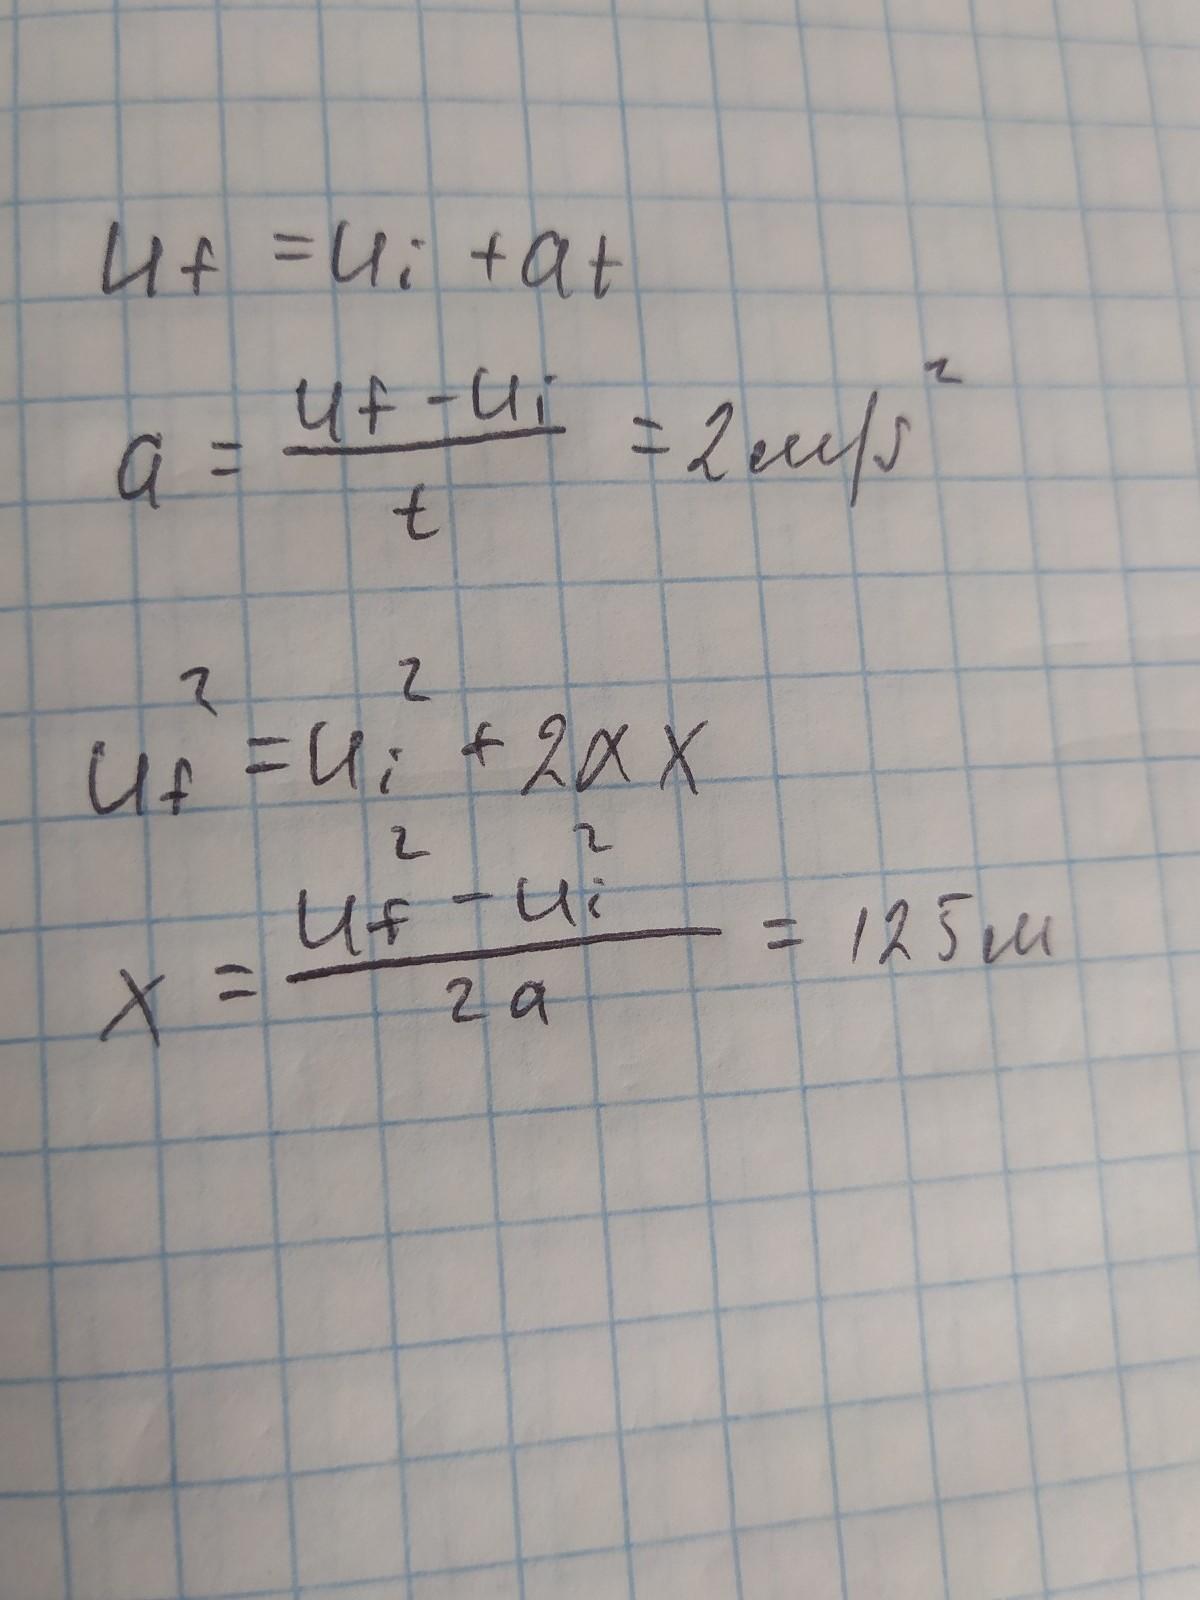 u_f = u_i + at
a = (u_f - u_i) / t = 2 m/s²
u_f² = u_i² + 2ax
x = (u_f² - u_i²) / 2a = 125 m